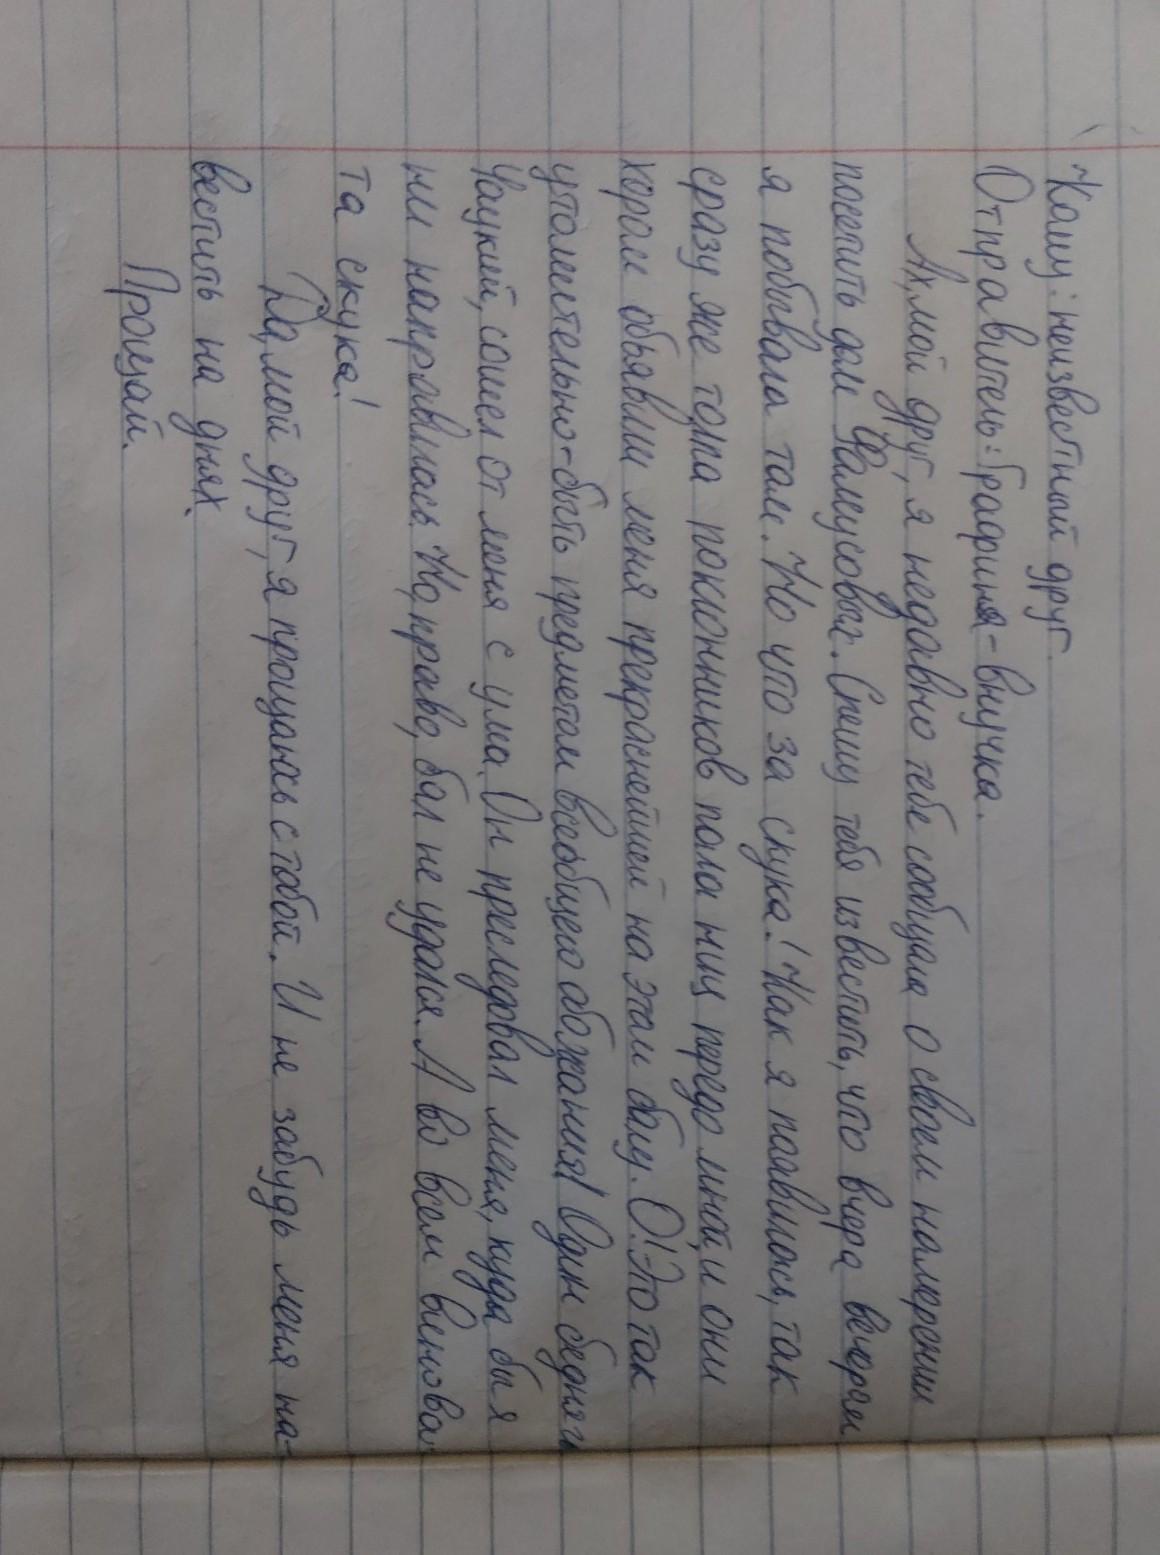 Кому: неизвестный друг
Отправитель: Графиня-внучка.
Ах, мой друг, я недавно тебе сообщала о своем намерении
посетить дом Фамусовых. Спешу тебя известить, что вчера вечером
я побывала там. Но что за скука! Как я появилась, так
сразу же толпа поклонников пала ниц передо мной, и они
хором объявили меня прекраснейшей на этом балу. О! Это так
утомительно-быть предметом всеобщего обожания! Один бедняга
Чацкий, сошел от меня с ума. Он преследовал меня, куда бы я
ни направилась. Но, право, бал не удался. А во всем винова-
та скука!
Да, мой друг, я прощаюсь с тобой. И не забудь меня на-
вестить на днях.
Прощай.